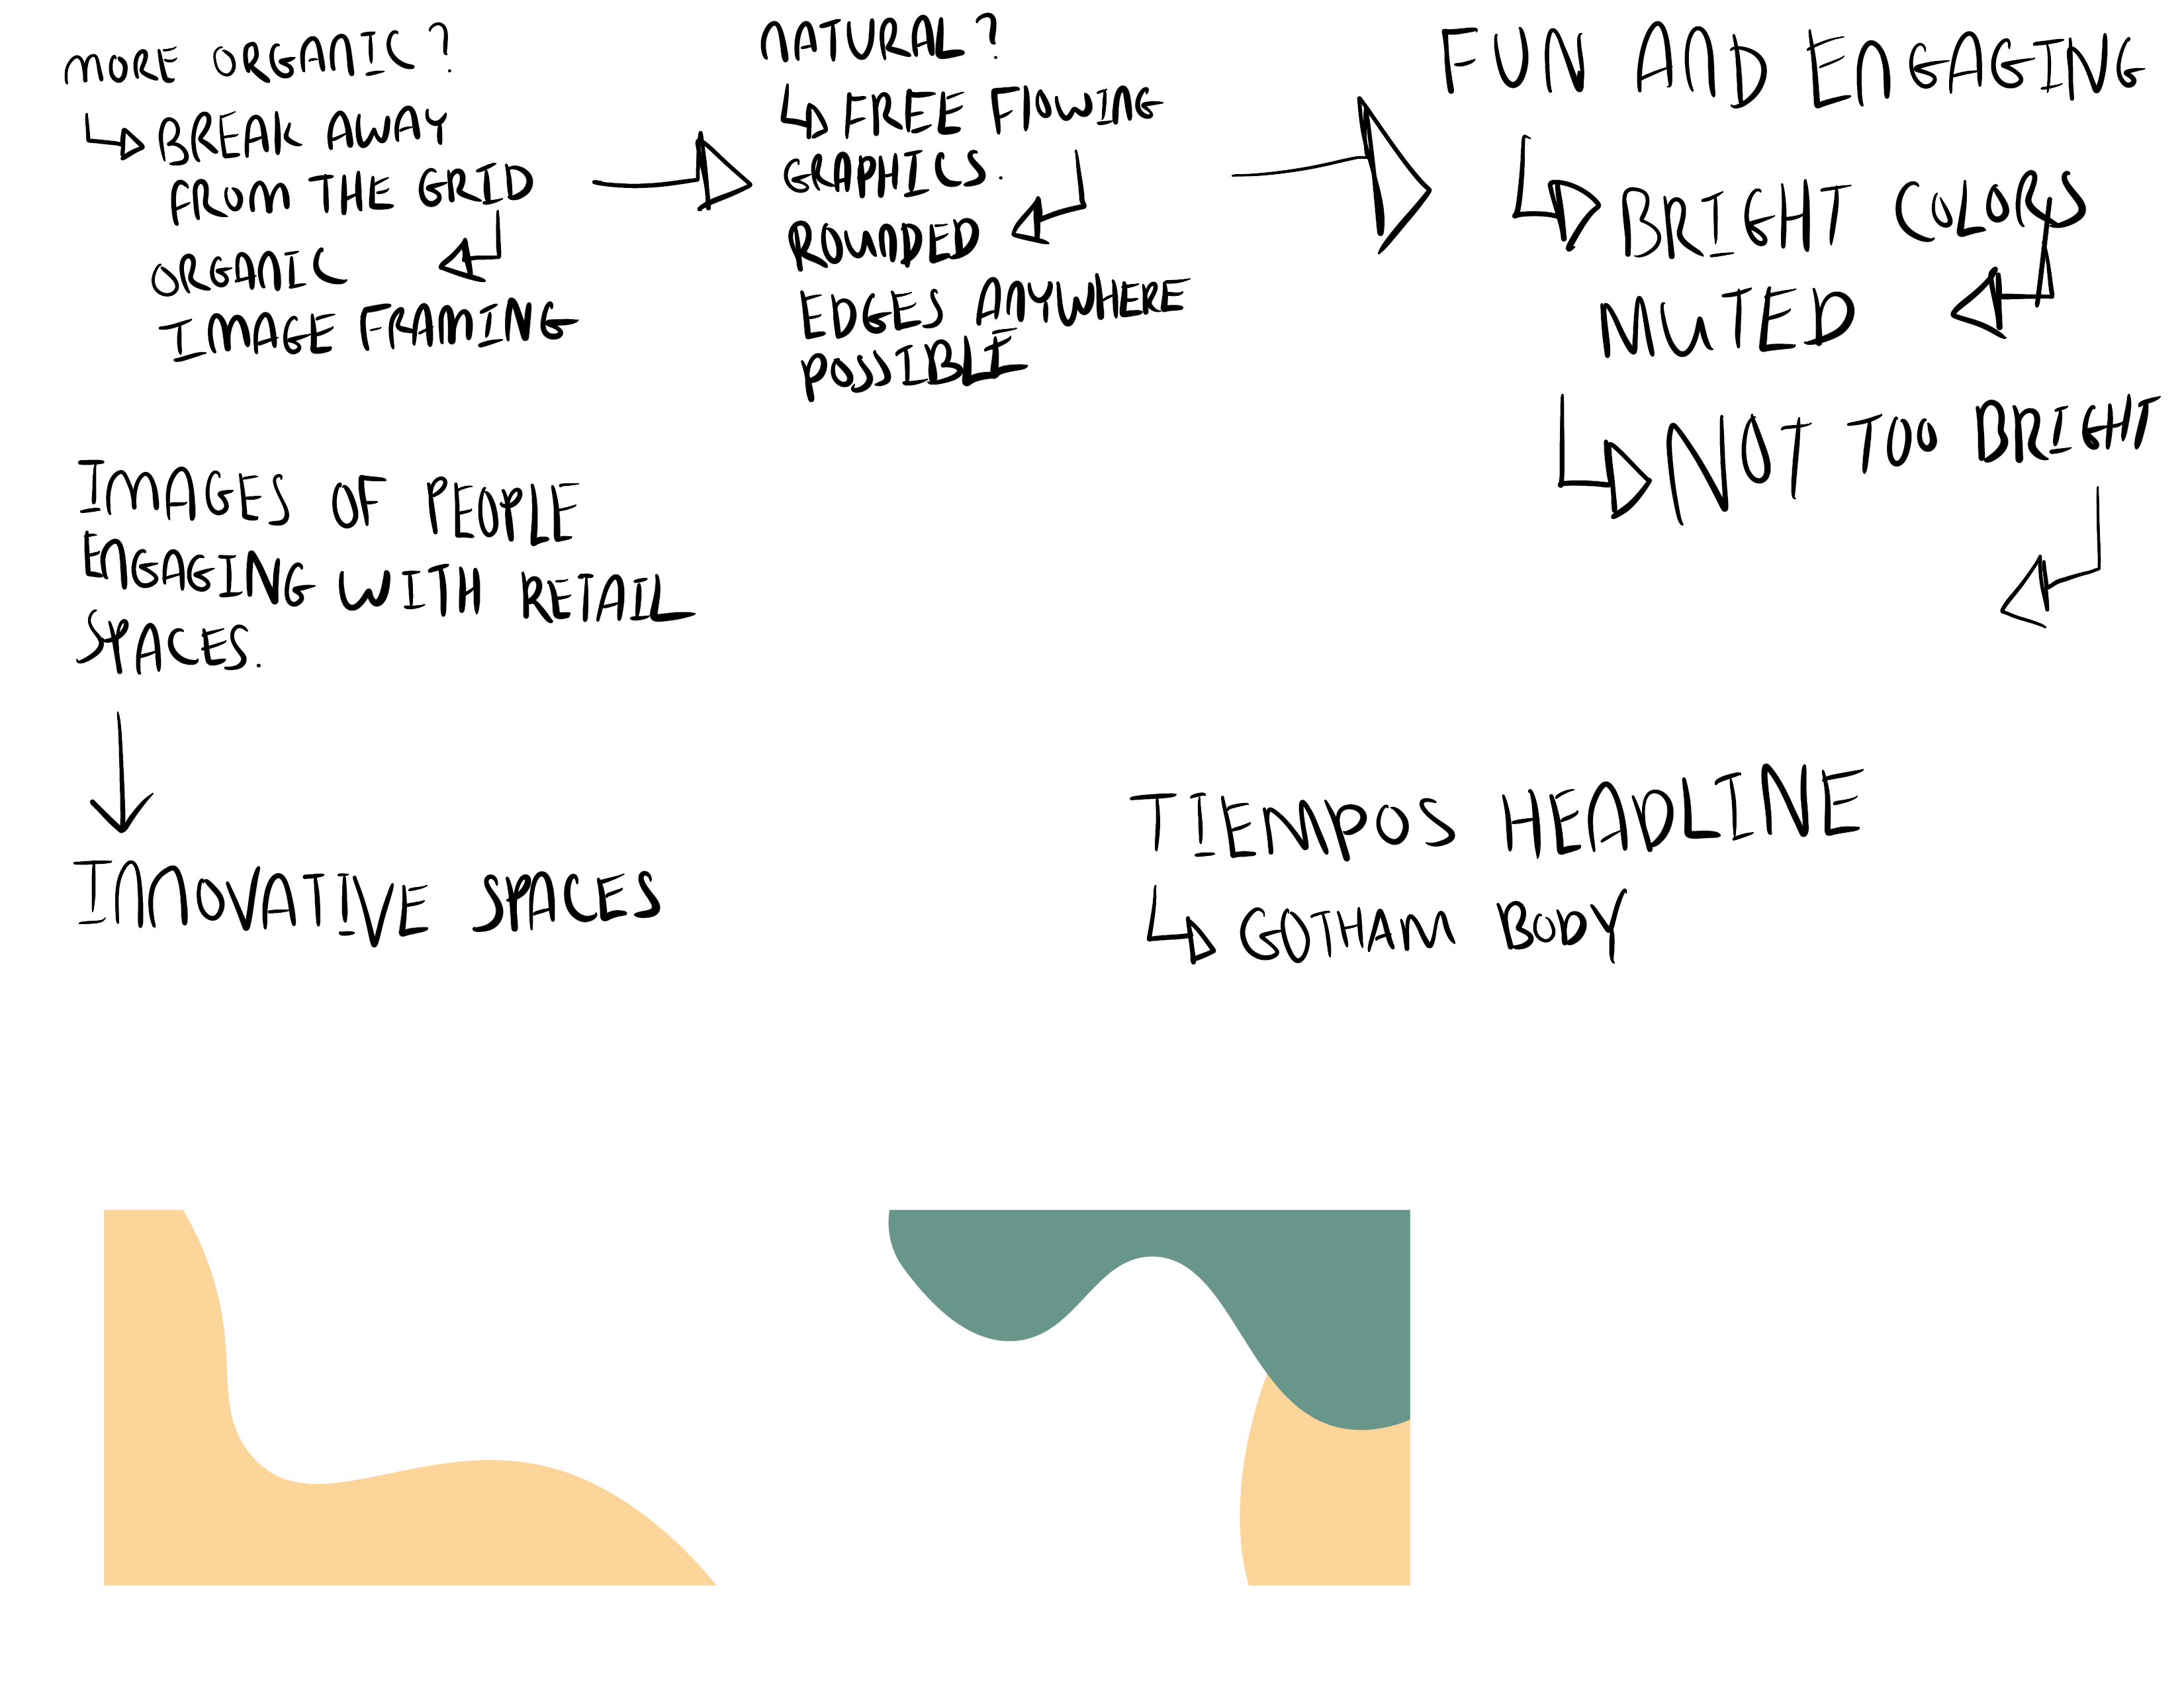 MORE ORGANIC?
BREAK AWAY
FROM THE GRID
ORGANIC
IMAGE FRAMING
NATURAL?
FREE FLOWING
GRAPHICS.
ROUNDED
EDGES ANYWHERE
POSSIBLE
FUN AND ENGAGING
BRIGHT COLORS
MUTED
NOT TOO BRIGHT
IMAGES OF PEOPLE
ENGAGING WITH RETAIL
SPACES.
INNOVATIVE SPACES
TIEMPOS HEADLINE
GOTHAM BODY